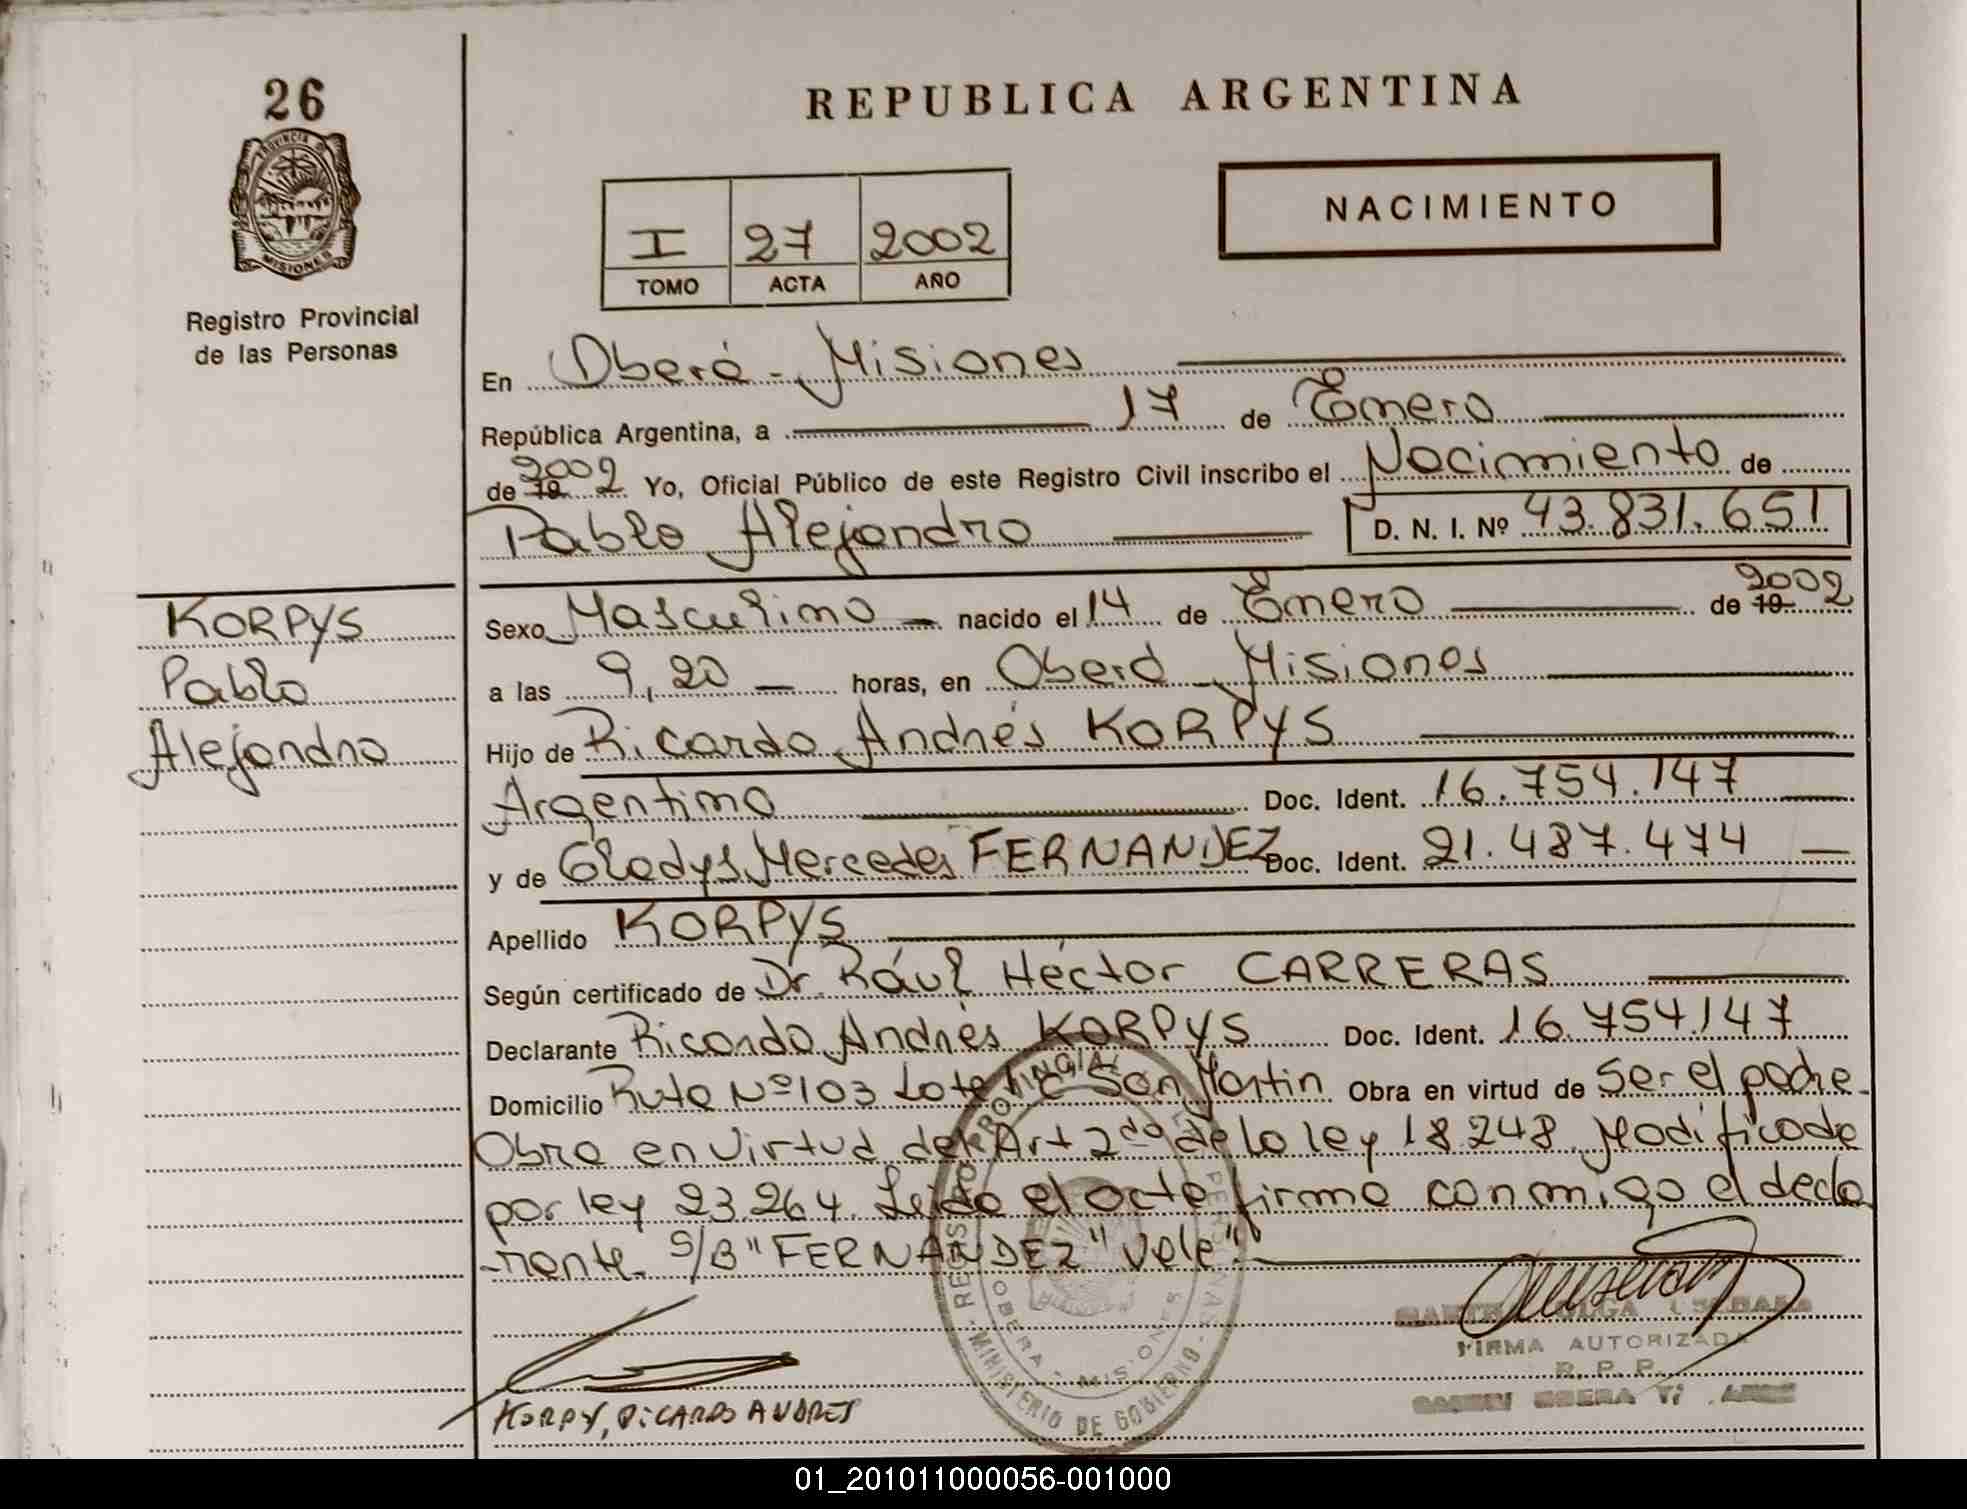 26
PROVINCIA DE
MISIONES
Registro Provincial
de las Personas
REPUBLICA ARGENTINA
I 27 2002
TOMO ACTA AÑO
NACIMIENTO
En Oberá - Misiones
República Argentina, a 17 de Enero
de 19 2002 Yo, Oficial Público de este Registro Civil inscribo el Nacimiento de
Pablo Alejandro D. N. I. Nº 43.831.651
KORPYS
Pablo
Alejandro
Sexo Masculino nacido el 14 de Enero de 19 2002
a las 9,20 horas, en Oberá - Misiones
Hijo de Ricardo Andrés KORPYS
Argentino Doc. Ident. 16.754.147
y de Gladys Mercedes FERNANDEZ Doc. Ident. 21.487.474
Apellido KORPYS
Según certificado de Dr. Raúl Héctor CARRERAS
Declarante Ricardo Andrés KORPYS Doc. Ident. 16.754.147
Domicilio Ruta Nº 103 Lote San Martin Obra en virtud de Ser el padre-
Obra en virtud del Art 2do de la ley 18.248 Modificada
por ley 23.264. Leida el acta firma conmigo el decla
rante. S/B "FERNANDEZ" Vale".
REGISTRO PROVINCIAL DE LAS PERSONAS
OBERA - MISIONES
MINISTERIO DE GOBIERNO
FIRMA AUTORIZADA
R. P. P.
KORPY, RICARDO ANDRES
01_201011000056-001000